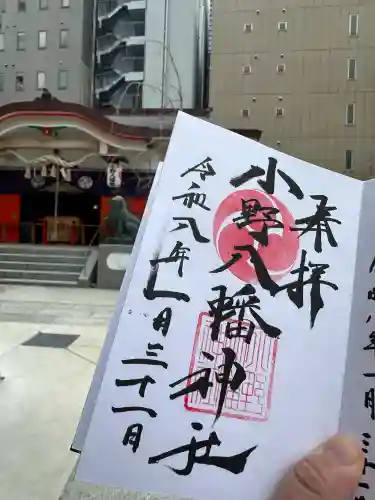 奉拝
小野八幡神社
令和八年一月三十一日